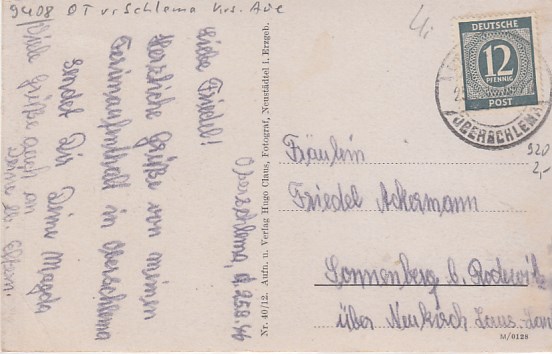 9408 OT v. Schlema Krs. Aue
Oberschlema, d. 25.8.46
Liebe Friedel!
Herzliche Grüße von meinem
Ferienaufenthalt in Oberschlema
sendet Dir Deine Magda
Viele Grüße auch an
Deine lb. Eltern.
Nr. 40/12. Aufn. u. Verlag Hugo Claus, Fotograf, Neustädtel i. Erzgeb.
DEUTSCHE
12
PFENNIG
POST
OBERSCHLEMA
920
2,-
Fräulein
Friedel Ackermann
Sonnenberg b. Rodewitz
über Neukirch Laus.
M/0128